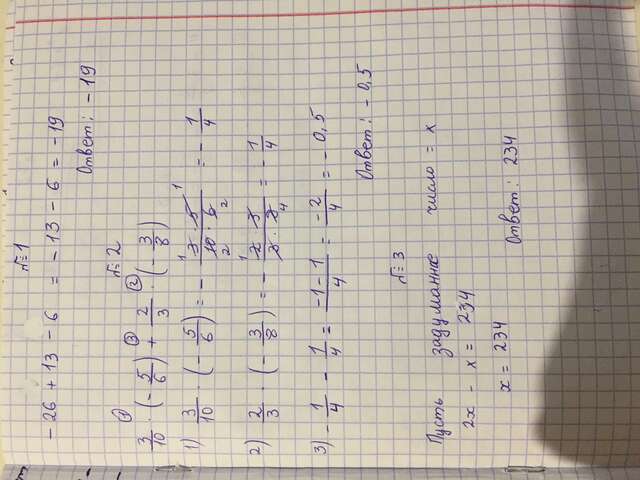 №1
-26 + 13 - 6 = -13 - 6 = -19
Ответ: -19
№2
3/10 · (-5/6) + 2/3 · (-3/8)
1) 3/10 · (-5/6) = - 3·5/10·6 = - 1/4
2) 2/3 · (-3/8) = - 2·3/3·8 = - 1/4
3) - 1/4 - 1/4 = -1-1/4 = -2/4 = -0,5
Ответ: -0,5
№3
Пусть задуманное число = x
2x - x = 234
x = 234
Ответ: 234